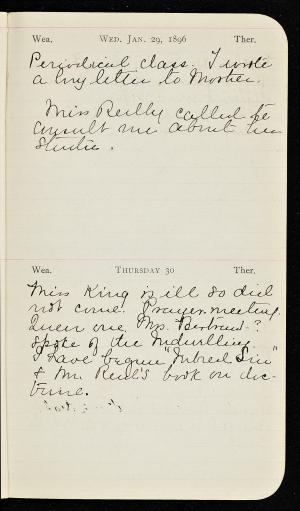 Wea. WED. JAN. 29, 1896 Ther.
Periodical class. I wrote
a long letter to Mother.
Miss Reilly called to
consult me about her
studies.
Wea. THURSDAY 30 Ther.
Miss King is ill so did
not come. Prayer meeting.
one, Mrs. ?
spoke of the Indwelling.
I have begun "Inbred Sin"
& Mr. book on doc-
trine.